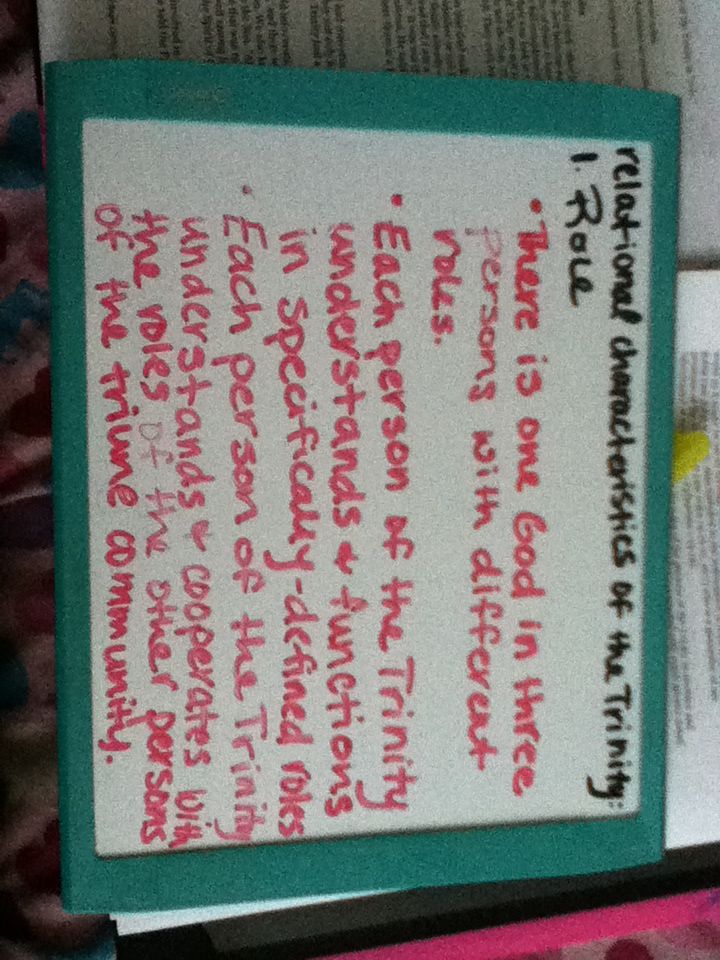 relational characteristics of the Trinity:
1. Role
• There is one God in three
persons with different
roles.
• Each person of the Trinity
understands & functions
in specifically-defined roles
• Each person of the Trinity
understands & cooperates with
the roles of the other persons
of the triune community.